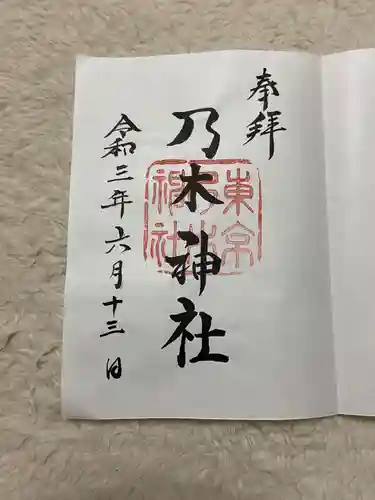 奉拝
乃木神社
令和三年六月十三日
東京
乃木
神社